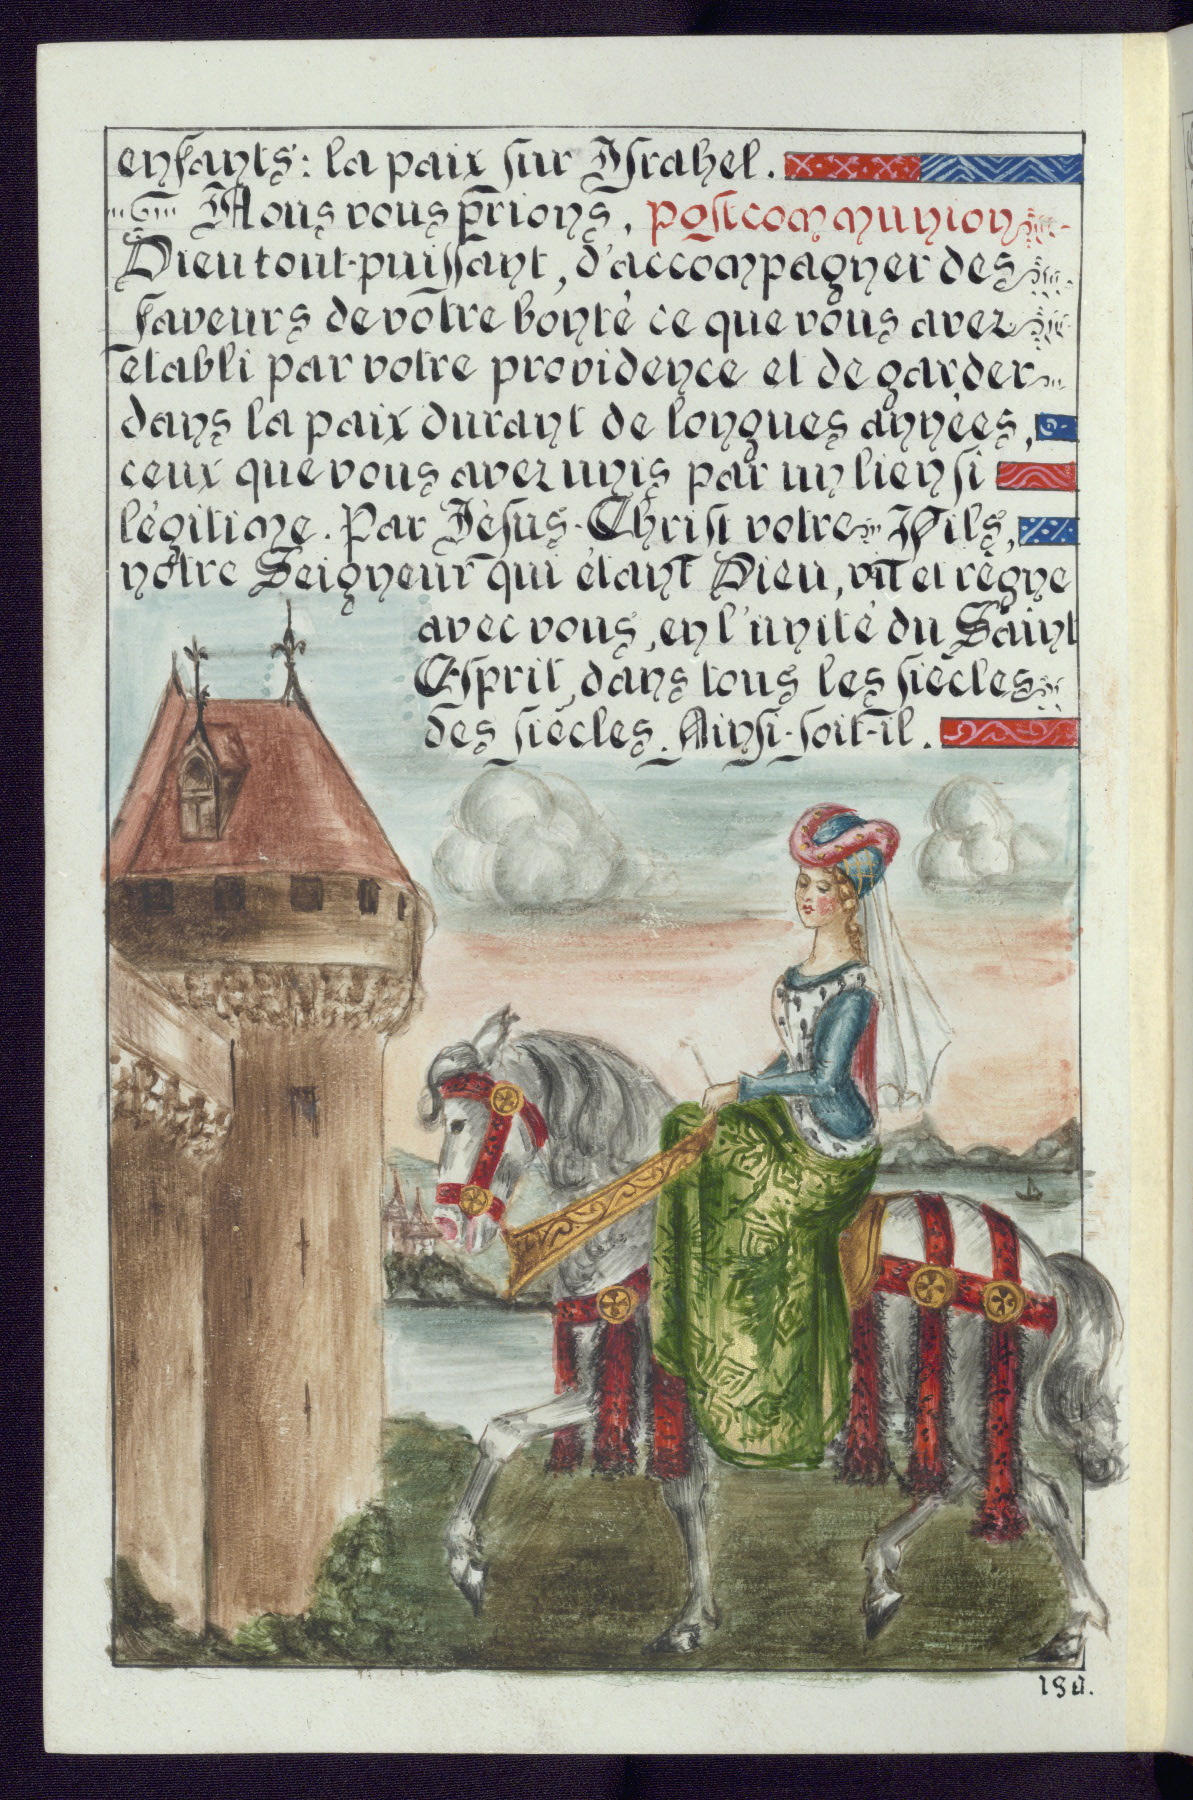 enfants: la paix sur Israhel.
Nous vous prions, postcommunion
Dieu tout-puissant, d'accompagner des
faveurs de votre bonté ce que vous avez
etabli par votre providence et de garder
dans la paix durant de longues années,
ceux que vous avez unis par un lien si
légitime. Par Jésus-Christ votre Fils,
notre Seigneur qui étant Dieu, vit et règne
avec vous, en l'unité du Saint
Esprit, dans tous les siècles
des siècles. Ainsi-soit-il.